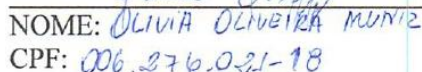 NOME: OLIVIA OLIVEIRA MUNIZ
CPF: 006.276.021-18